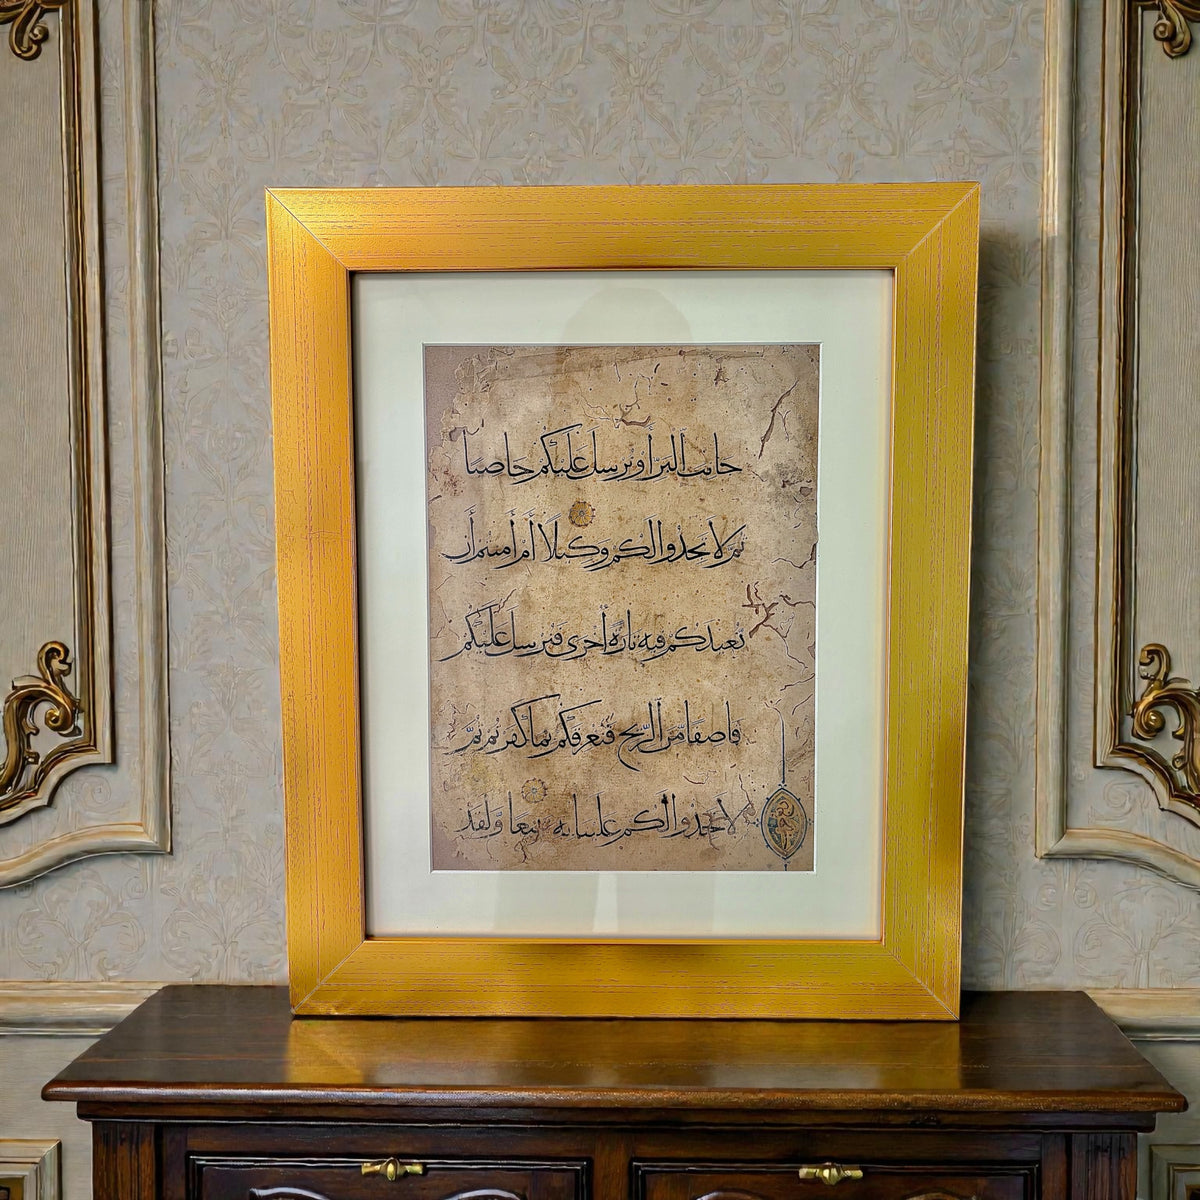 جانب ٱلبر أو يرسل عليكم حاصبا
ثم لا تجدوا لكم وكيلا أم أمنتم أن
يعيدكم فيه تارة أخرى فيرسل عليكم
قاصفا من ٱلريح فيغرقكم بما كفرتم ثم
لا تجدوا لكم علينا به تبيعا ولقد